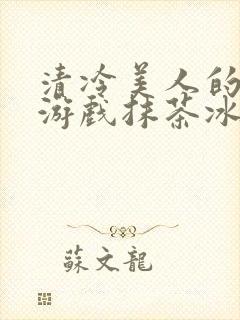 清冷美人的
游戏抹茶冰
蘇文龍